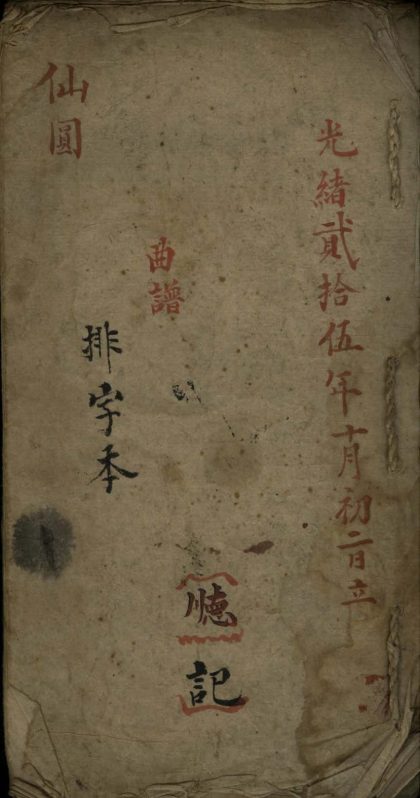 光緒貳拾伍年十月初二日立
曲譜
排字本
記
仙圓